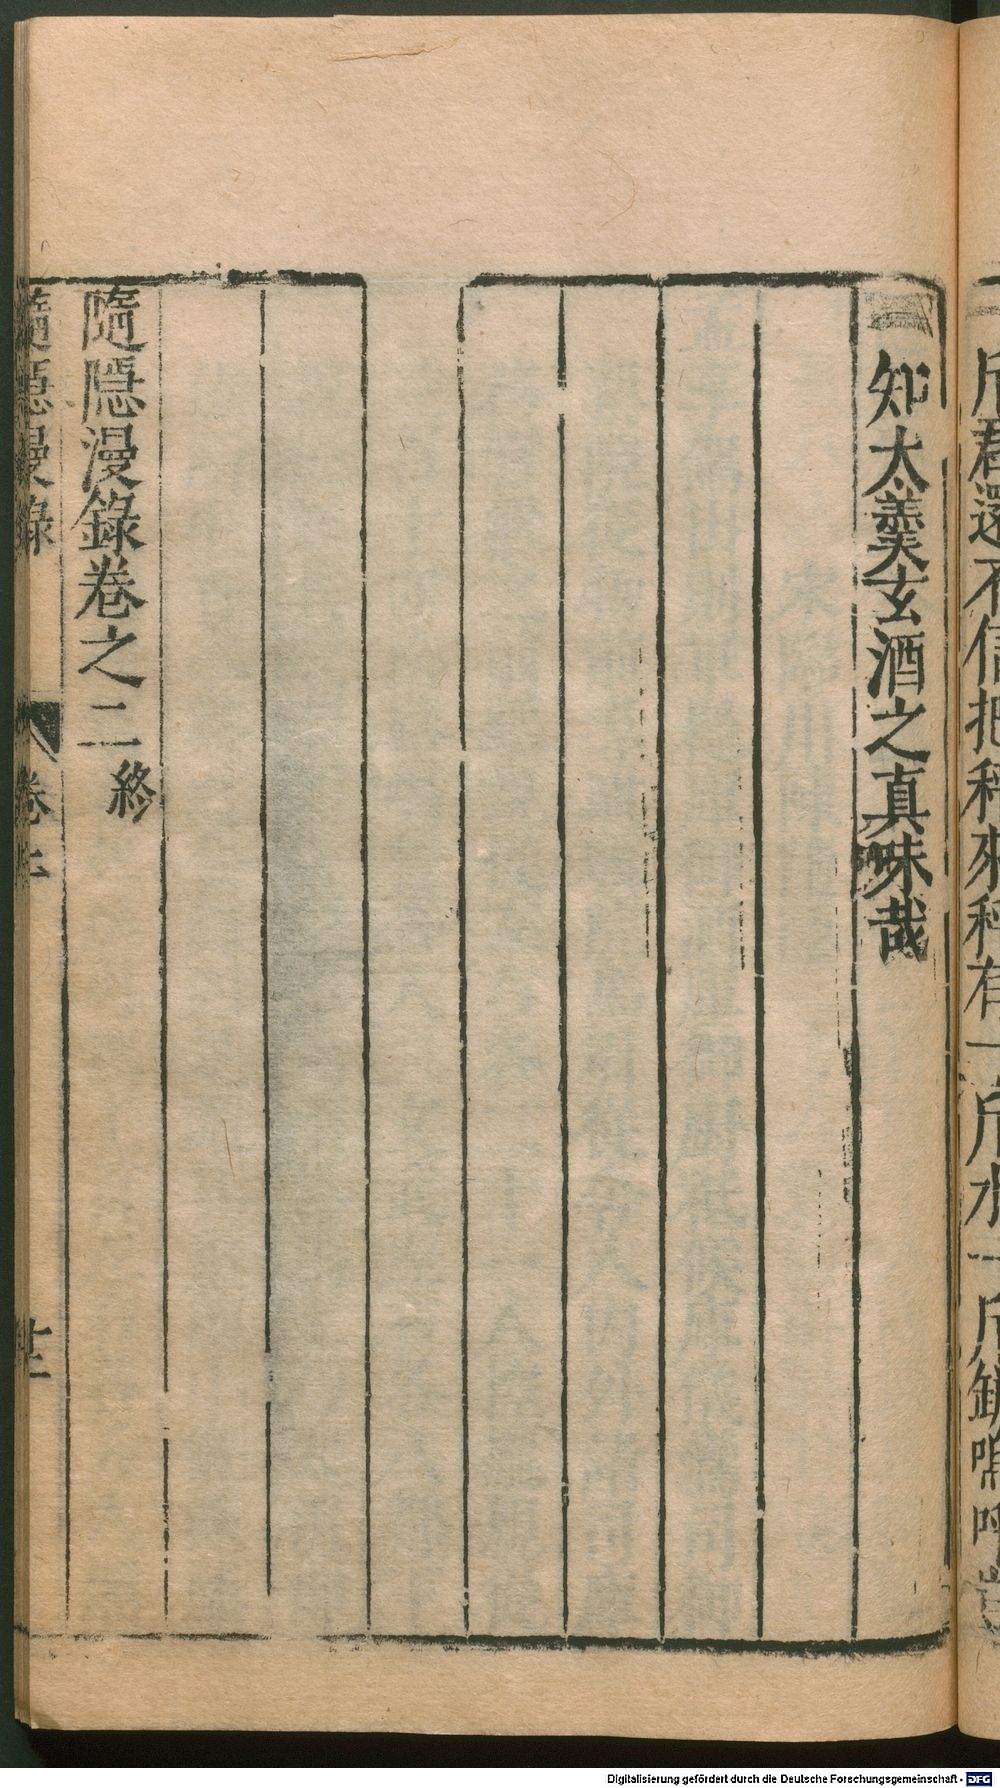 斤君還不信把秤來秤有一斤水一斤鎻嗚呼豈
知太羹玄酒之真味哉
隨隱漫錄卷之二終
隨隱漫錄 卷二 廿二
Digitalisierung gefördert durch die Deutsche Forschungsgemeinschaft - DFG